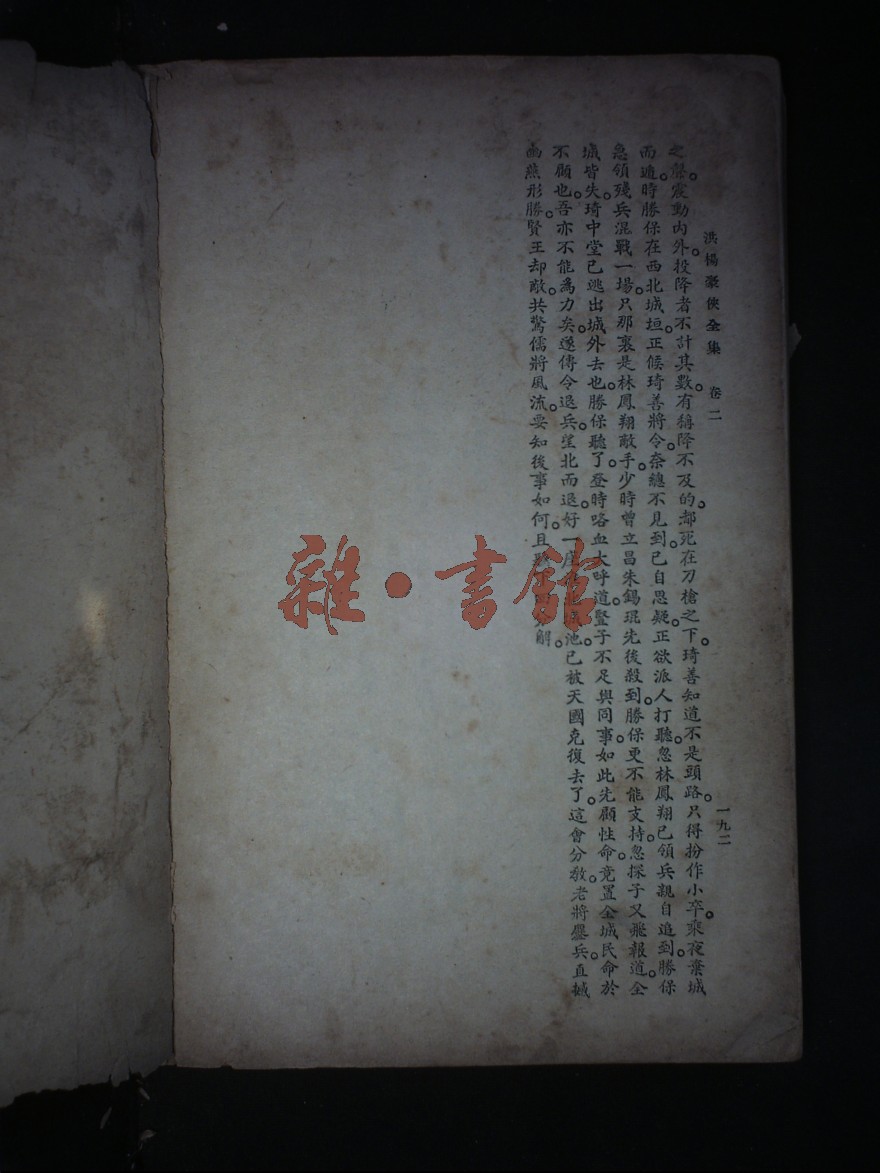 洪楊豪俠全集 卷二 一九二
之聲。震動內外。投降者不計其數。有稱降不及的。都死在刀槍之下。琦善知道不是頭路。只得扮作小卒。乘夜棄城
而遁。時勝保在西北城垣。正候琦善將令。奈總不見到。已自思疑。正欲派人打聽。忽林鳳翔已領兵親自追到。勝保
急領殘兵混戰一場。只那裏是林鳳翔敵手。少時曾立昌朱錫琨先後殺到。勝保更不能支持。忽探子又飛報道。全
城皆失。琦中堂已逃出城外去也。勝保聽了。登時咯血大呼道。豎子不足與同事。如此先顧性命。竟置全城民命於
不顧也。吾亦不能為力矣。遂傳令退兵。望北而退。好一座城池。已被天國克復去了。這會分教。老將鏖兵。直撼
幽燕形勝。賢王却敵。共驚儒將風流。要知後事如何。且解。
雜·書館